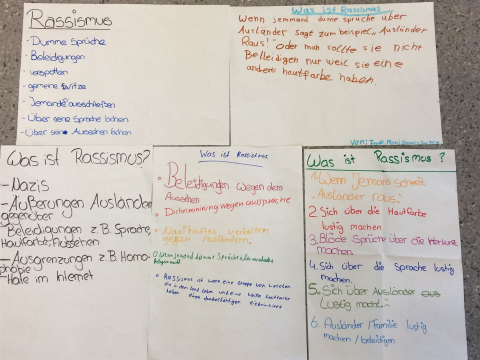 Rassismus
- Dumme Sprüche
- Beleidigungen
- verspotten
- gemeine Witze
- Jemanden ausschließen
- Über seine Sprache lachen
- Über sein Aussehen lachen
Was ist Rassismus
Wenn jemmand dume sprüche über
Ausländer sagt zum beispiel „Ausländer
Raus!" oder man sollte sie nicht
Belleidigen nur weil sie eine
andere hautfarbe haben.
Von:
Was ist Rassismus?
- Nazis
- Äußerungen Ausländer
gegenüber
- Beleidigungen z.B. Sprache,
Hautfarbe, Aussehen
- Ausgrenzungen z.B. Homo-
phobie
- Hate im Internet
Was ist Rassismus
Beleidigungen wegen dem
Aussehen
wegen aussprache
verhalten
gegen Ausländern.
Rassismus ist wenn eine Gruppe von Leuten
Was ist Rassismus?
1. Wenn Jemand schreit
Ausländer raus.
2. Sich über die Hautfarbe
lustig machen.
3. Blöde Sprüche über die
machen.
4. Sich über die Sprache lustig
machen.
5. Sich über Ausländer
lustig macht.
6. Ausländer/Familie lustig
machen/beleidigen